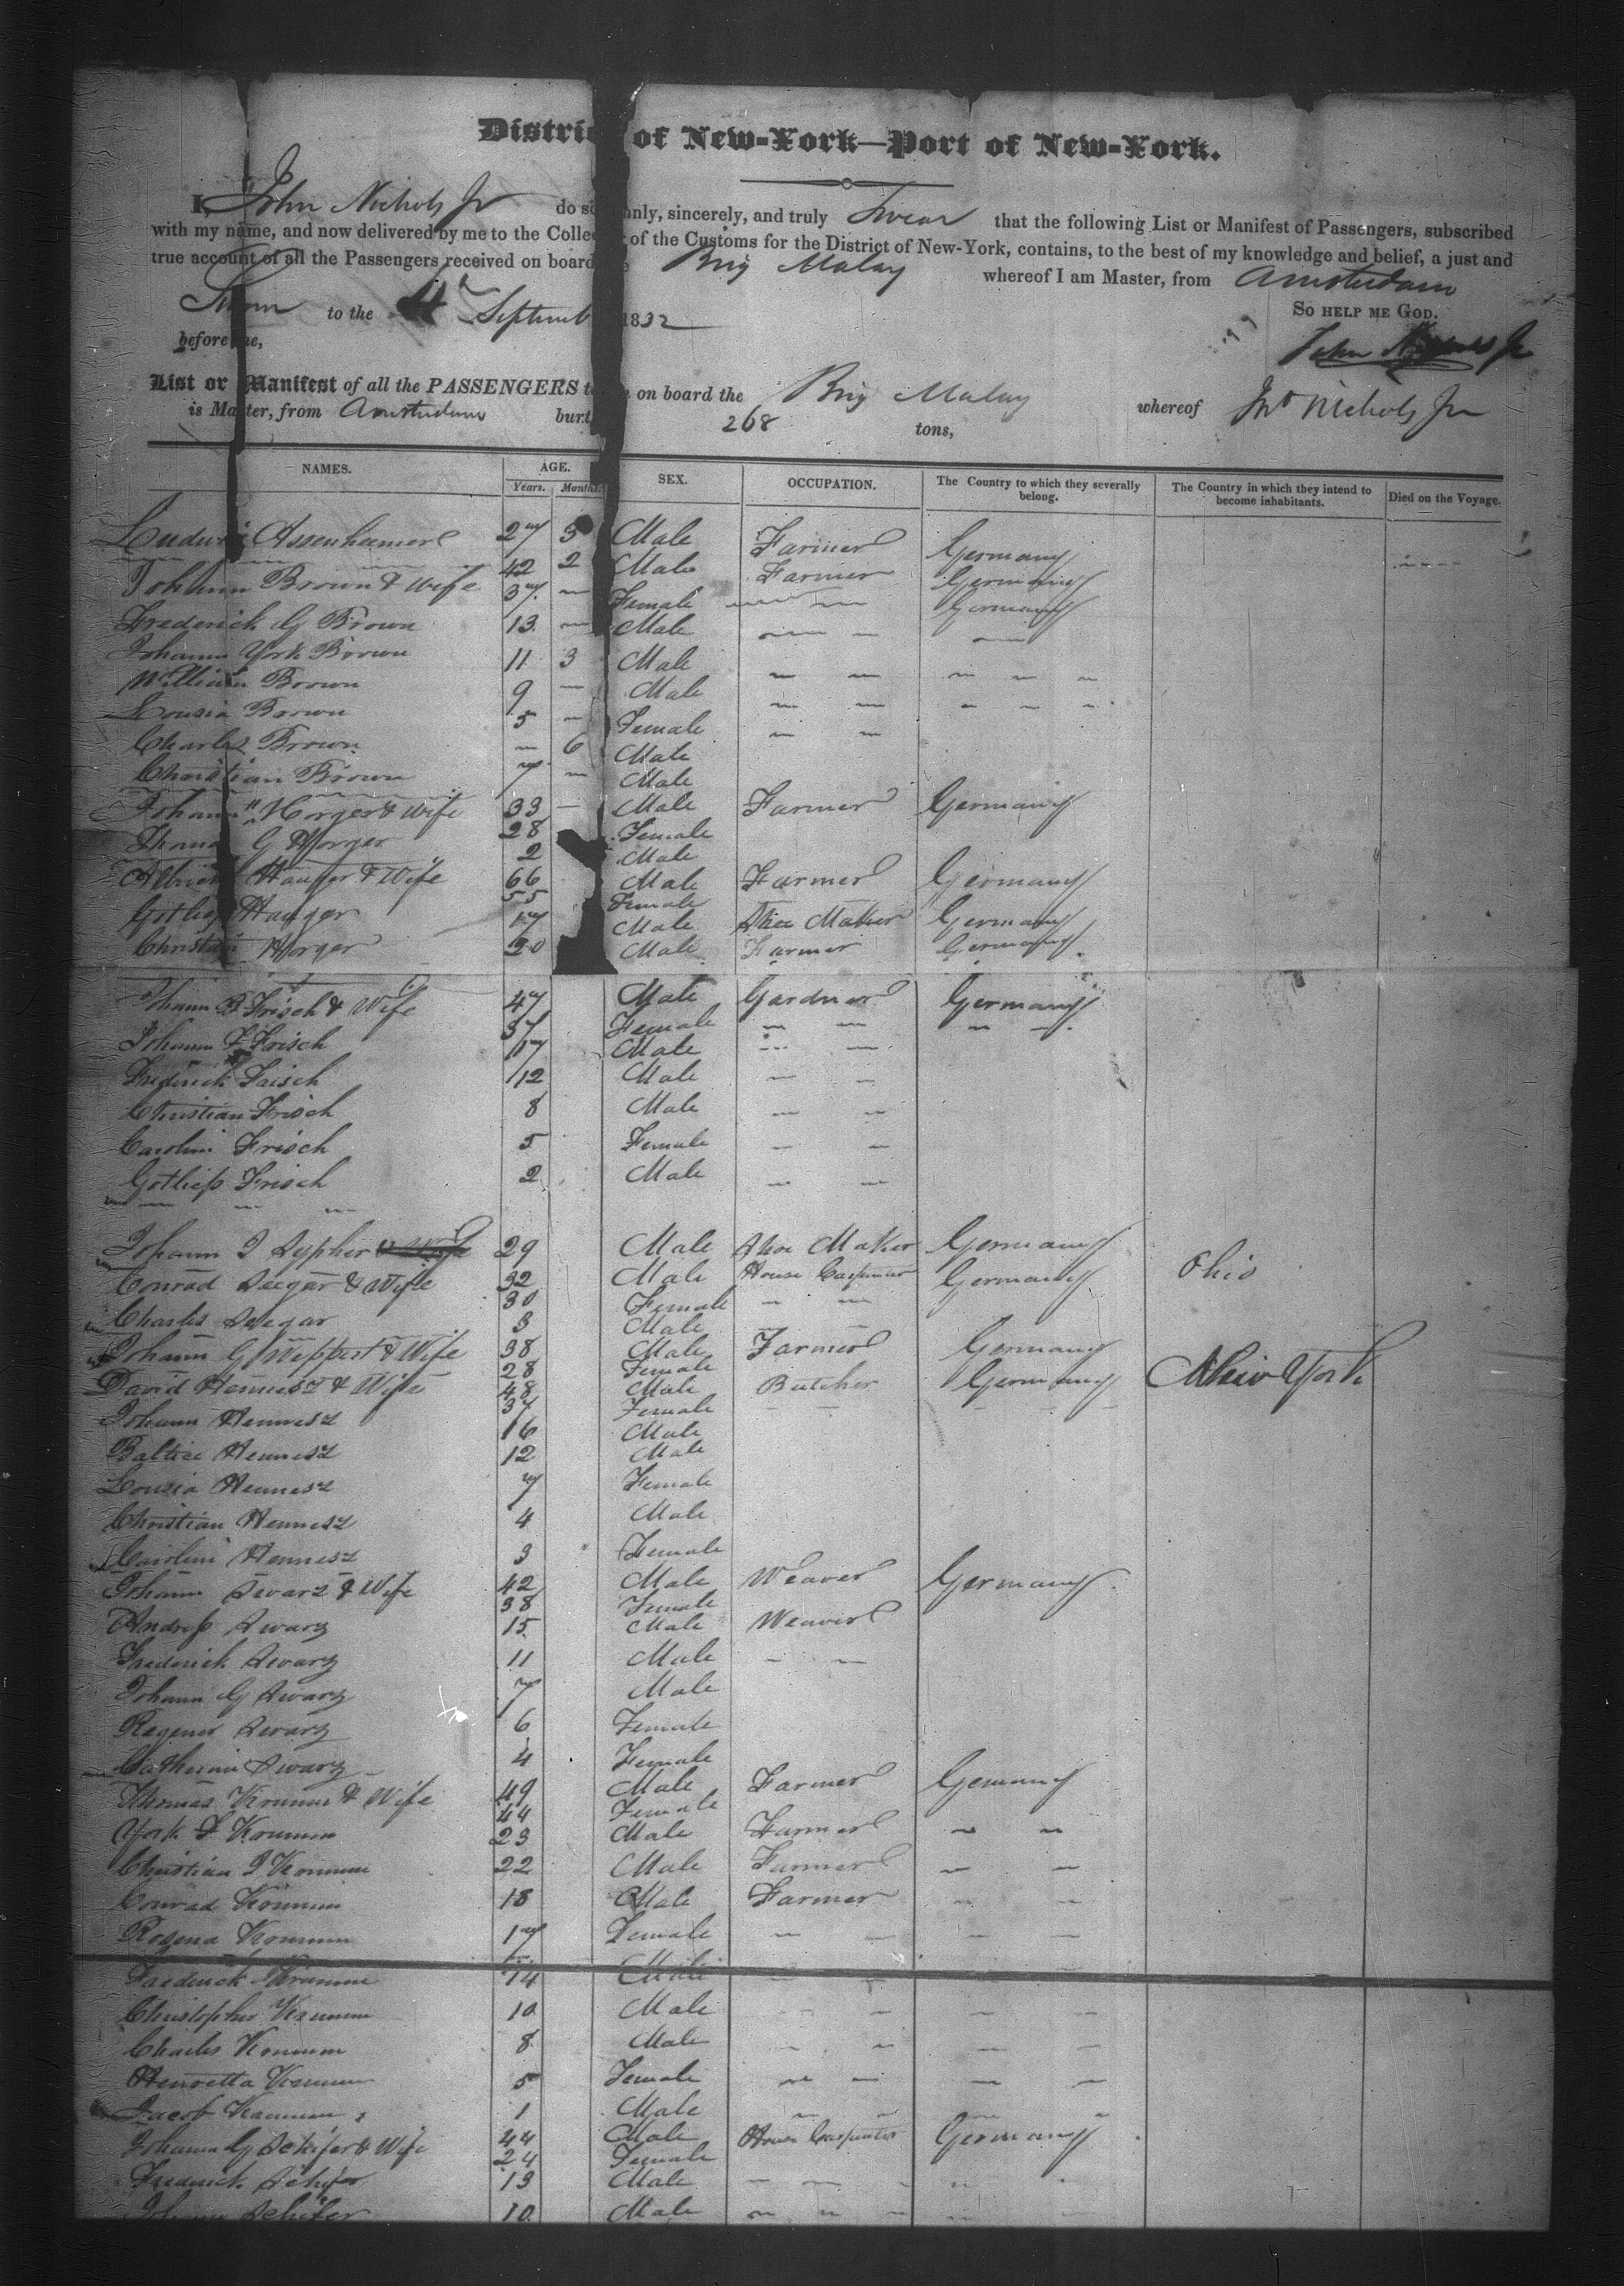 District of New-York—Port of New-York.
I, John Nichols Jr do solemnly, sincerely, and truly Swear that the following List or Manifest of Passengers, subscribed
with my name, and now delivered by me to the Collector of the Customs for the District of New-York, contains, to the best of my knowledge and belief, a just and
true account of all the Passengers received on board the Brig Malay whereof I am Master, from Amsterdam
Sworn to the 4 September 1832
So help me God.
before me,
John Nichols Jr
List or Manifest of all the PASSENGERS taken on board the Brig Malay whereof Jno Nichols Jr
is Master, from Amsterdam burthen 268 tons,
NAMES. AGE. SEX. OCCUPATION. The Country to which they severally belong. The Country in which they intend to become inhabitants. Died on the Voyage.
Years. Months.
Ludwig Assenheimer 27 3 Male Farmer Germany
Johann Brown & Wife 42 2 Male Farmer Germany
37 Female Germany
Frederick G Brown 13 Male
Johann York Brown 11 3 Male
William Brown 9 Male
Lousia Brown 5 Female
Charles Brown 6 Male
Christian Brown 7 Male
Johann Horger & Wife 33 Male Farmer Germany
28 Female
Thomas G Horger 2 Male
Hauger & Wife 66 Male Farmer Germany
55 Female
Gotlieb Hauger 17 Male Shoe Maker Germany
Christian Horger 30 Male Farmer Germany
Johann B Frisch & Wife 47 Male Gardner Germany
37 Female
Johann F Frisch 17 Male
Frederick Frisch 12 Male
Christian Frisch 8 Male
Carolini Frisch 5 Female
Gotliep Frisch 2 Male
Johann J Sypher & Wife 29 Male Shoe Maker Germany
Conrad Seegar & Wife 32 Male House Carpenter Germany Ohio
30 Female
Charles Seegar 3 Male
Johann G Weppert & Wife 38 Male Farmer Germany
28 Female
David Hennesz & Wife 48 Male Butcher Germany New York
37 Female
Johann Hennesz 16 Male
Baltice Hennesz 12 Male
Lousia Hennesz 7 Female
Christian Hennesz 4 Male
Carolini Hennesz 3 Female
Johann Swarz & Wife 42 Male Weaver Germany
38 Female
Andreß Swarz 15 Male Weaver
Frederick Swarz 11 Male
Johann G Swarz 7 Male
Regener Swarz 6 Female
Catherini Swarz 4 Female
Thomas Krumm & Wife 49 Male Farmer Gemany
44 Female
York F Krumm 23 Male Farmer
Christian J Krumm 22 Male Farmer
Conrad Krumm 18 Male Farmer
Rosena Krumm 17 Female
Frederick Krumm 14 Male
Christopher Krumm 10 Male
Charles Krumm 8 Male
Henretta Krumm 5 Female
Jacob Krumm 1 Male
Johann G Schifer & Wife 44 Male House Carpenter Germany
24 Female
Frederick Schifer 13 Male
Johann Schifer 10 Male